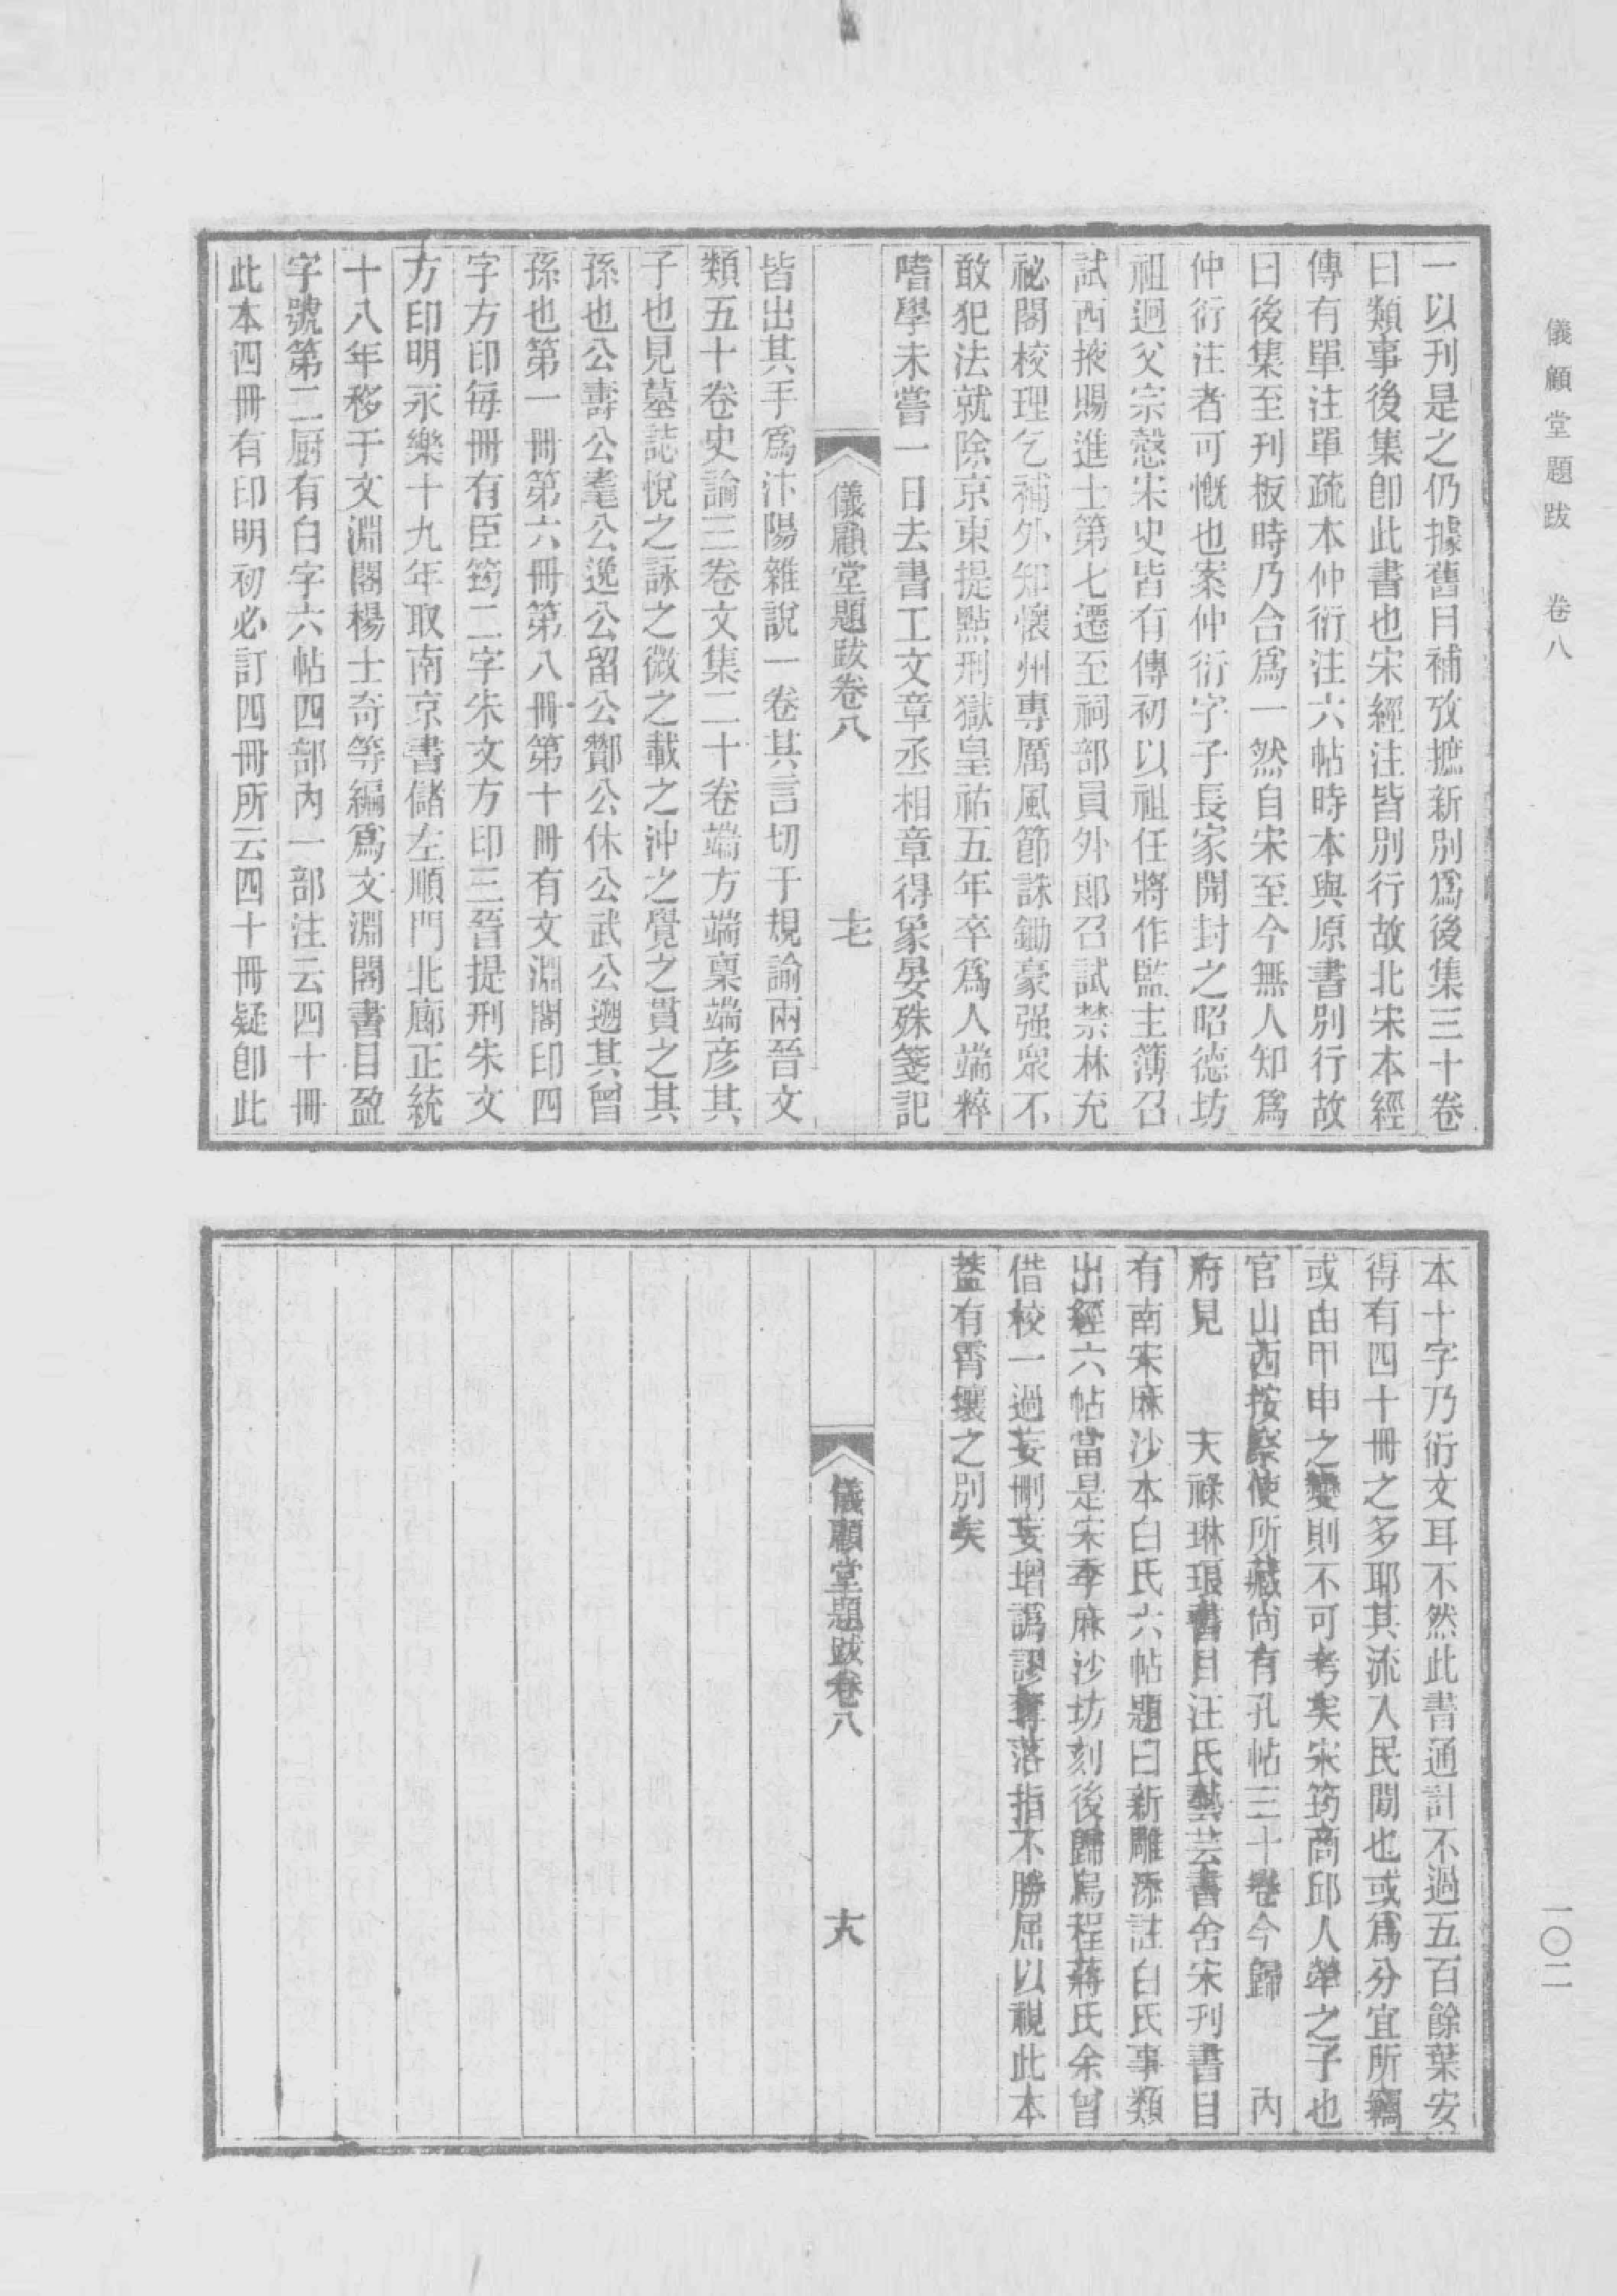 儀顧堂題跋　卷八
一以刊是之仍據舊目補攷摭新別爲後集三十卷
曰類事後集卽此書也宋經注皆別行故北宋本經
傳有單注單疏本仲衍注六帖時本與原書別行故
曰後集至刊板時乃合爲一然自宋至今無人知爲
仲衍注者可慨也案仲衍字子長家開封之昭德坊
祖迥父宗慤宋史皆有傳初以祖任將作監主簿召
試西掖賜進士第七遷至祠部員外郎召試禁林充
祕閣校理乞補外知懷州專厲風節誅鋤豪强眾不
敢犯法就除京東提點刑獄皇祐五年卒爲人端粹
嗜學未嘗一日去書工文章丞相章得象晏殊箋記
儀顧堂題跋卷八　十七
皆出其手爲汴陽雜說一卷其言切于規諭兩晉文
類五十卷史論三卷文集二十卷端方端稟端彦其
子也見墓誌悅之詠之微之載之沖之覺之貫之其
孫也公壽公耄公逸公留公酇公休公武公遡其曾
孫也第一冊第六冊第八冊第十冊有文淵閣印四
字方印毎冊有臣筠二字朱文方印三晉提刑朱文
方印明永樂十九年取南京書儲左順門北廊正統
十八年移于文淵閣楊士奇等編爲文淵閣書目盈
字號第二厨有白字六帖四部內一部注云四十冊
此本四冊有印明初必訂四冊所云四十冊疑卽此
本十字乃衍文耳不然此書通計不過五百餘葉安
得有四十冊之多耶其流入民閒也或爲分宜所竊
或由甲申之變則不可考矣宋筠商邱人犖之子也
官山西按察使所藏尙有孔帖三十卷今歸　內
府見　天祿琳琅書目汪氏藝芸書舍宋刊書目
有南宋麻沙本白氏六帖題曰新雕添註白氏事類
出經六帖當是宋季麻沙坊刻後歸烏程蔣氏余曾
借校一過妄刪妄增譌謬奪落指不勝屈以視此本
葢有霄壤之別矣
儀顧堂題跋卷八　十八
一〇二